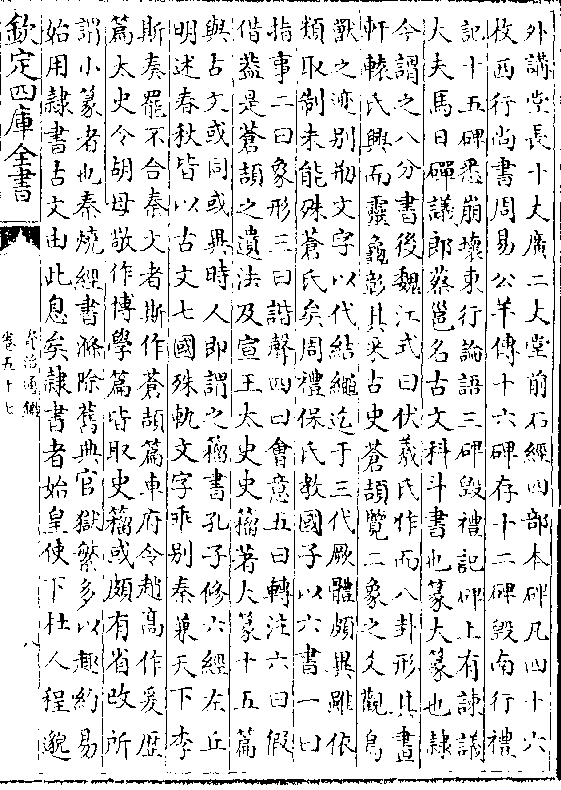 外講堂長十丈廣二丈堂前石經四部本碑凡四十六
枚西行尚書周易公羊傳十六碑存十二碑毁南行禮
記十五碑悉崩壞東行論語三碑毁禮記碑上有諫議
大夫馬日磾議郎蔡邕名古文科斗書也篆大篆也隸
今謂之八分書後魏江式曰伏羲氏作而八卦形其畫
軒轅氏興而靈龜彰其采古史蒼頡覽二象之爻觀鳥
獸之迹别剏文字以代結繩迄于三代厥體頗異雖依
類取制未能殊蒼氏矣周禮保氏教國子以六書一曰
指事二曰象形三曰諧聲四曰會意五曰轉注六曰假
借葢是蒼頡之遺法及宣王太史史籀著大篆十五篇
與古文或同或異時人即謂之籀書孔子修六經左丘
明述春秋皆以古文七國殊軌文字乖别秦兼天下李
斯奏罷不合秦文者斯作蒼頡篇車府令趙高作爰歴
篇太史令胡母敬作博學篇皆取史籀或頗有省改所
謂小篆者也秦燒經書滌除舊典官獄繁多以趣約易
始用隸書古文由此息矣隸書者始皇使下杜人程邈
欽定四庫全書
資治通鑑
卷五十七
八